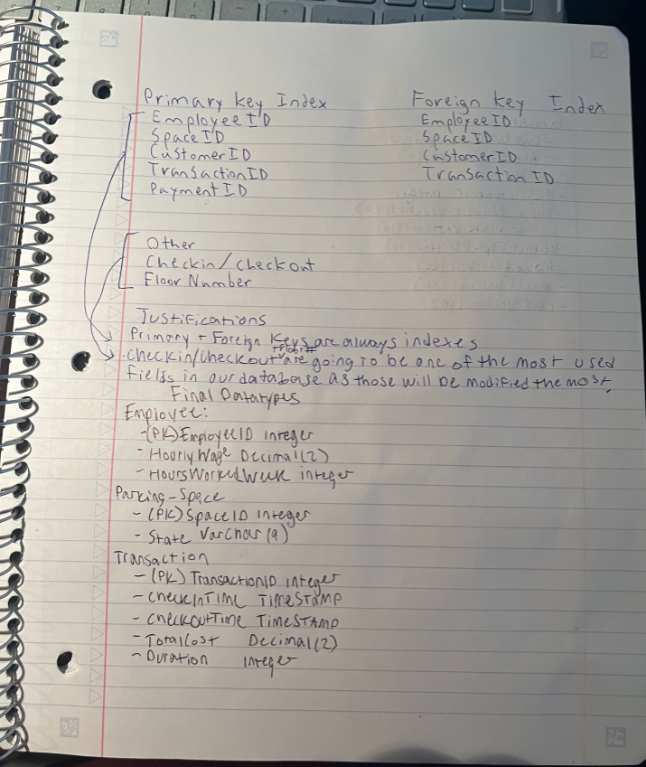 Primary Key Index
EmployeeID
SpaceID
CustomerID
TransactionID
PaymentID
Foreign Key Index
EmployeeID
SpaceID
CustomerID
Transaction ID
Other
Checkin/Checkout
Floor Number
Justifications
Primary + Foreign Keys are always indexes
checkin/checkout are going to be one of the most used
fields in our database as those will be modified the most.
Final Datatypes
Employee:
- (PK) EmployeeID integer
- HourlyWage Decimal(2)
- HoursWorkedWeek integer
Parking-Space
- (PK) SpaceID integer
- State Varchar(9)
Transaction
- (PK) TransactionID integer
- CheckInTime TIMESTAMP
- CheckOutTime TIMESTAMP
- TotalCost Decimal(2)
- Duration integer